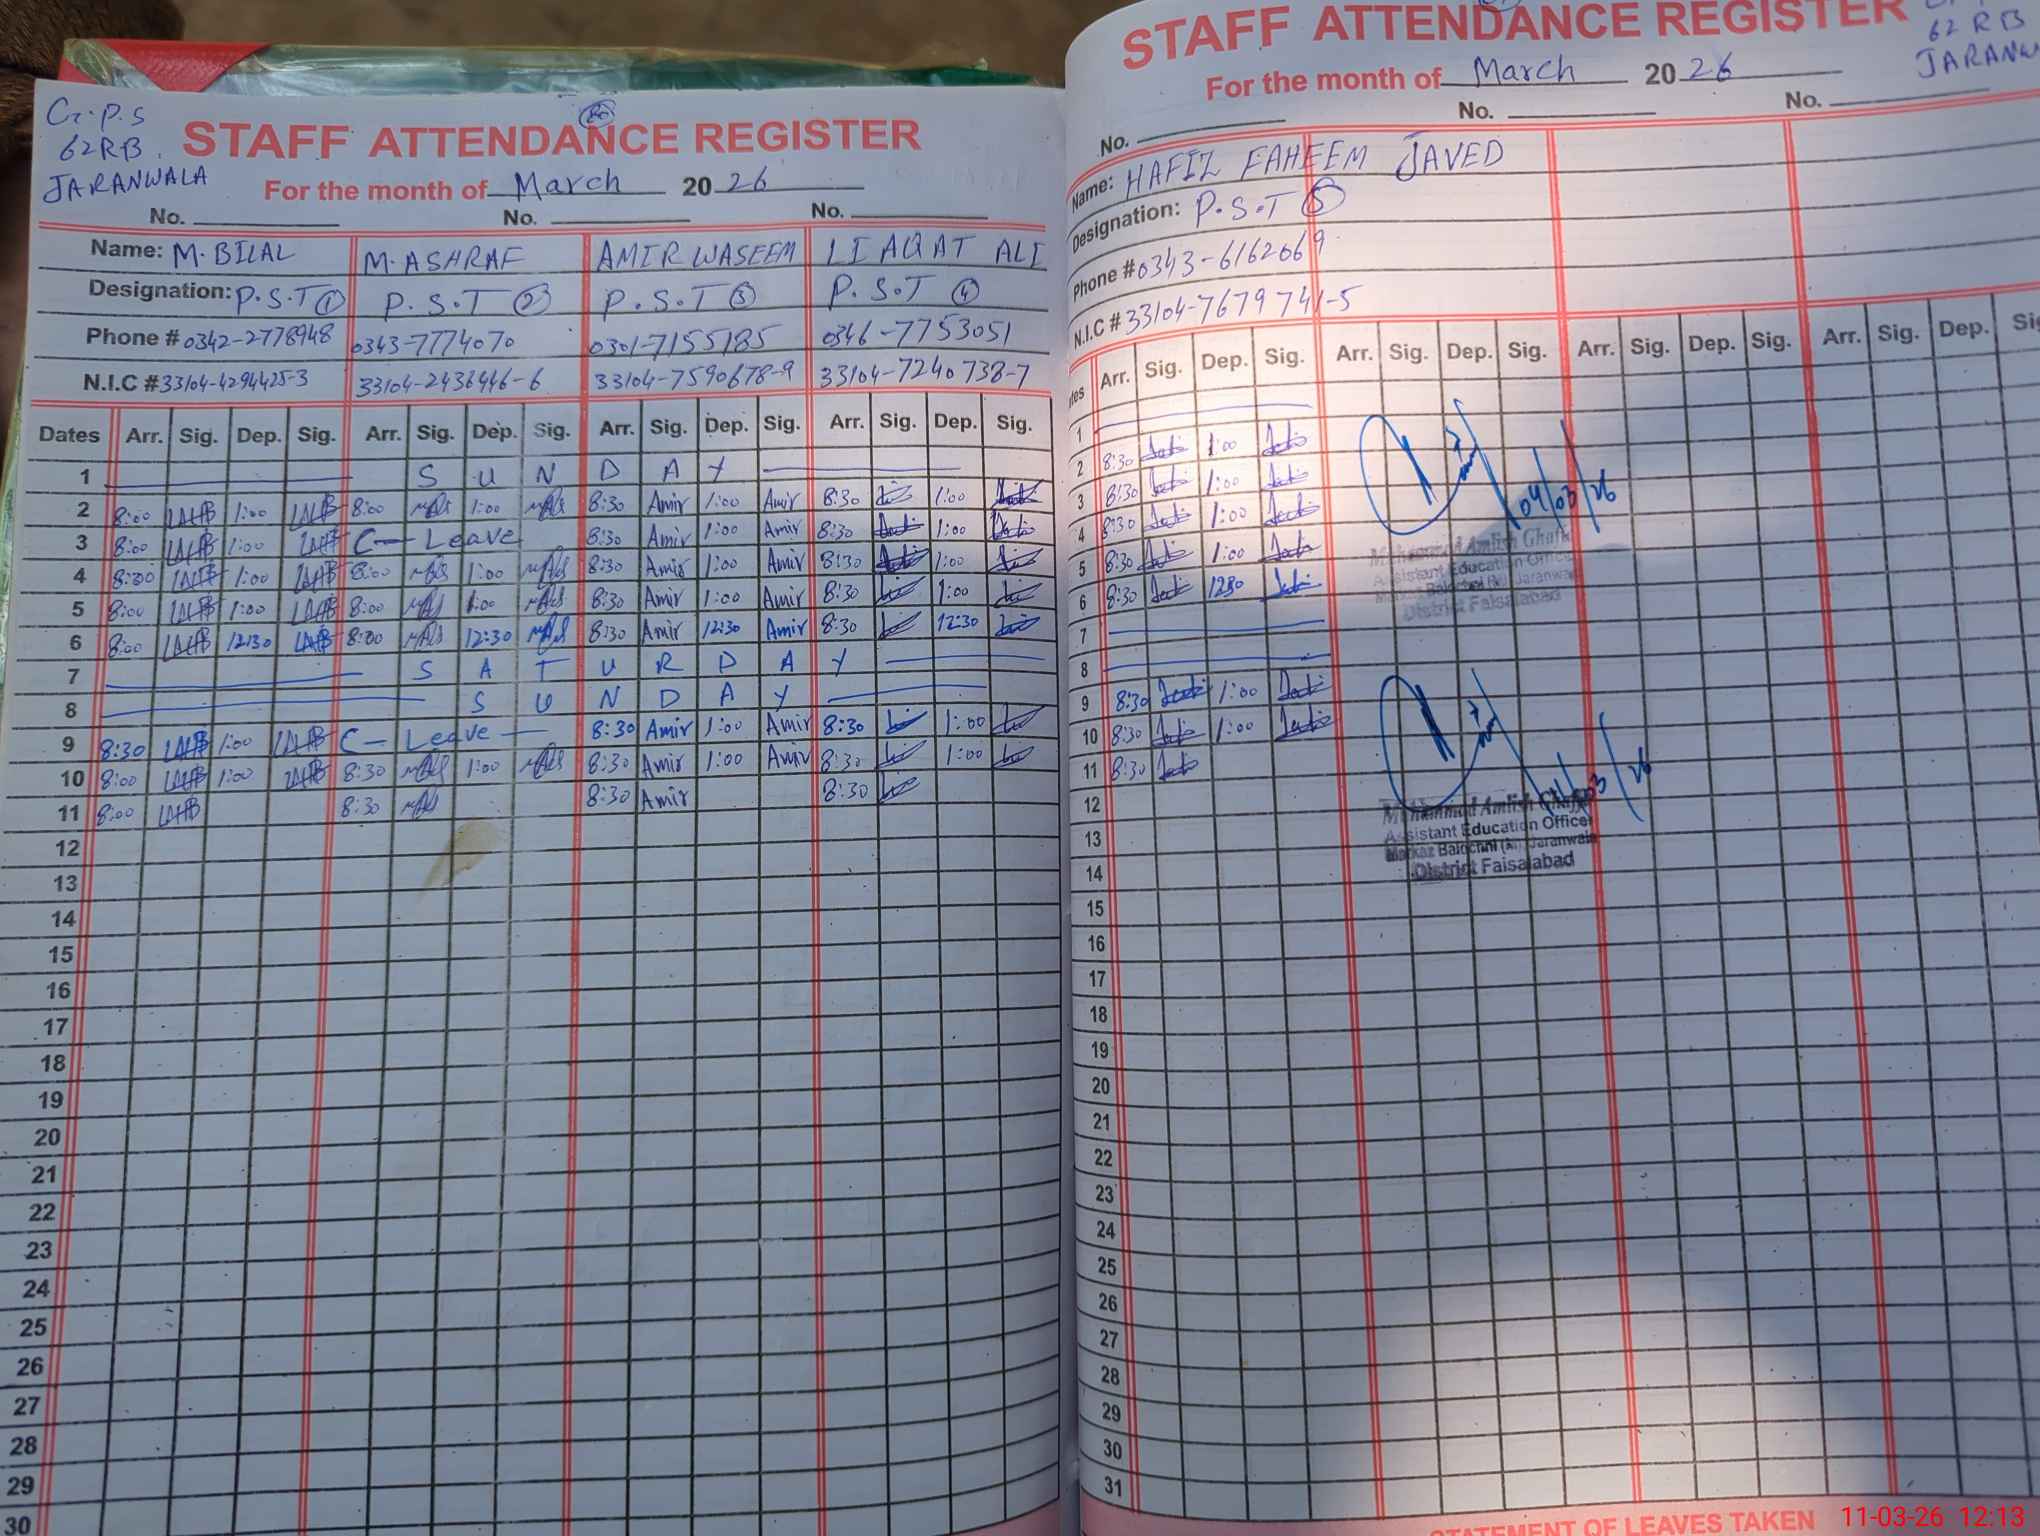 G.P.S
62RB.
JARANWALA
STAFF ATTENDANCE REGISTER
For the month of March 20 26
No. No. No.
Name: M. BILAL M. ASHRAF AMIR WASEEM LIAQAT ALI
Designation: P.S.T ① P.S.T ② P.S.T ③ P.S.T ④
Phone # 0342-2778948 0343-7774070 0301-7155785 0346-7753051
N.I.C # 33104-4294425-3 33104-2436446-6 33104-7590678-9 33104-7240738-7
Dates Arr. Sig. Dep. Sig. Arr. Sig. Dep. Sig. Arr. Sig. Dep. Sig. Arr. Sig. Dep. Sig.
1 S U N D A Y
2 8:00 1:00 8:00 1:00 8:30 Amir 1:00 Amir 8:30 1:00
3 8:00 1:00 C- Leave 8:30 Amir 1:00 Amir 8:30 1:00
4 8:00 1:00 8:00 1:00 8:30 Amir 1:00 Amir 8:30 1:00
5 8:00 1:00 8:00 1:00 8:30 Amir 1:00 Amir 8:30 1:00
6 8:00 12:30 8:00 12:30 8:30 Amir 12:30 Amir 8:30 12:30
7 S A T U R D A Y
8 S U N D A Y
9 8:30 1:00 C- Leave 8:30 Amir 1:00 Amir 8:30 1:00
10 8:00 1:00 8:30 1:00 8:30 Amir 1:00 Amir 8:30 1:00
11 8:00 8:30 8:30 Amir 8:30
12
13
14
15
16
17
18
19
20
21
22
23
24
25
26
27
28
29
30
62 RB
JARANW
STAFF ATTENDANCE REGISTER
For the month of March 20 26
No. No. No.
Name: HAFIZ FAHEEM JAVED
Designation: P.S.T ⑤
Phone # 0343-6162069
N.I.C # 33104-7679741-5
Arr. Sig. Dep. Sig. Arr. Sig. Dep. Sig. Arr. Sig. Dep. Sig. Arr. Sig. Dep.
1
2 8:30 1:00
3 8:30 1:00
4 8:30 1:00
5 8:30 1:00
6 8:30 1230
7
8
9 8:30 1:00
10 8:30 1:00
11 8:30
12
13
14
15
16
17
18
19
20
21
22
23
24
25
26
27
28
29
30
31
04/03/26
Assistant Education Officer
District Faisalabad
Muhammad Amlish
Assistant Education Officer
Markaz Balochni (M) Jaranwala
District Faisalabad
STATEMENT OF LEAVES TAKEN
11-03-26 12:13